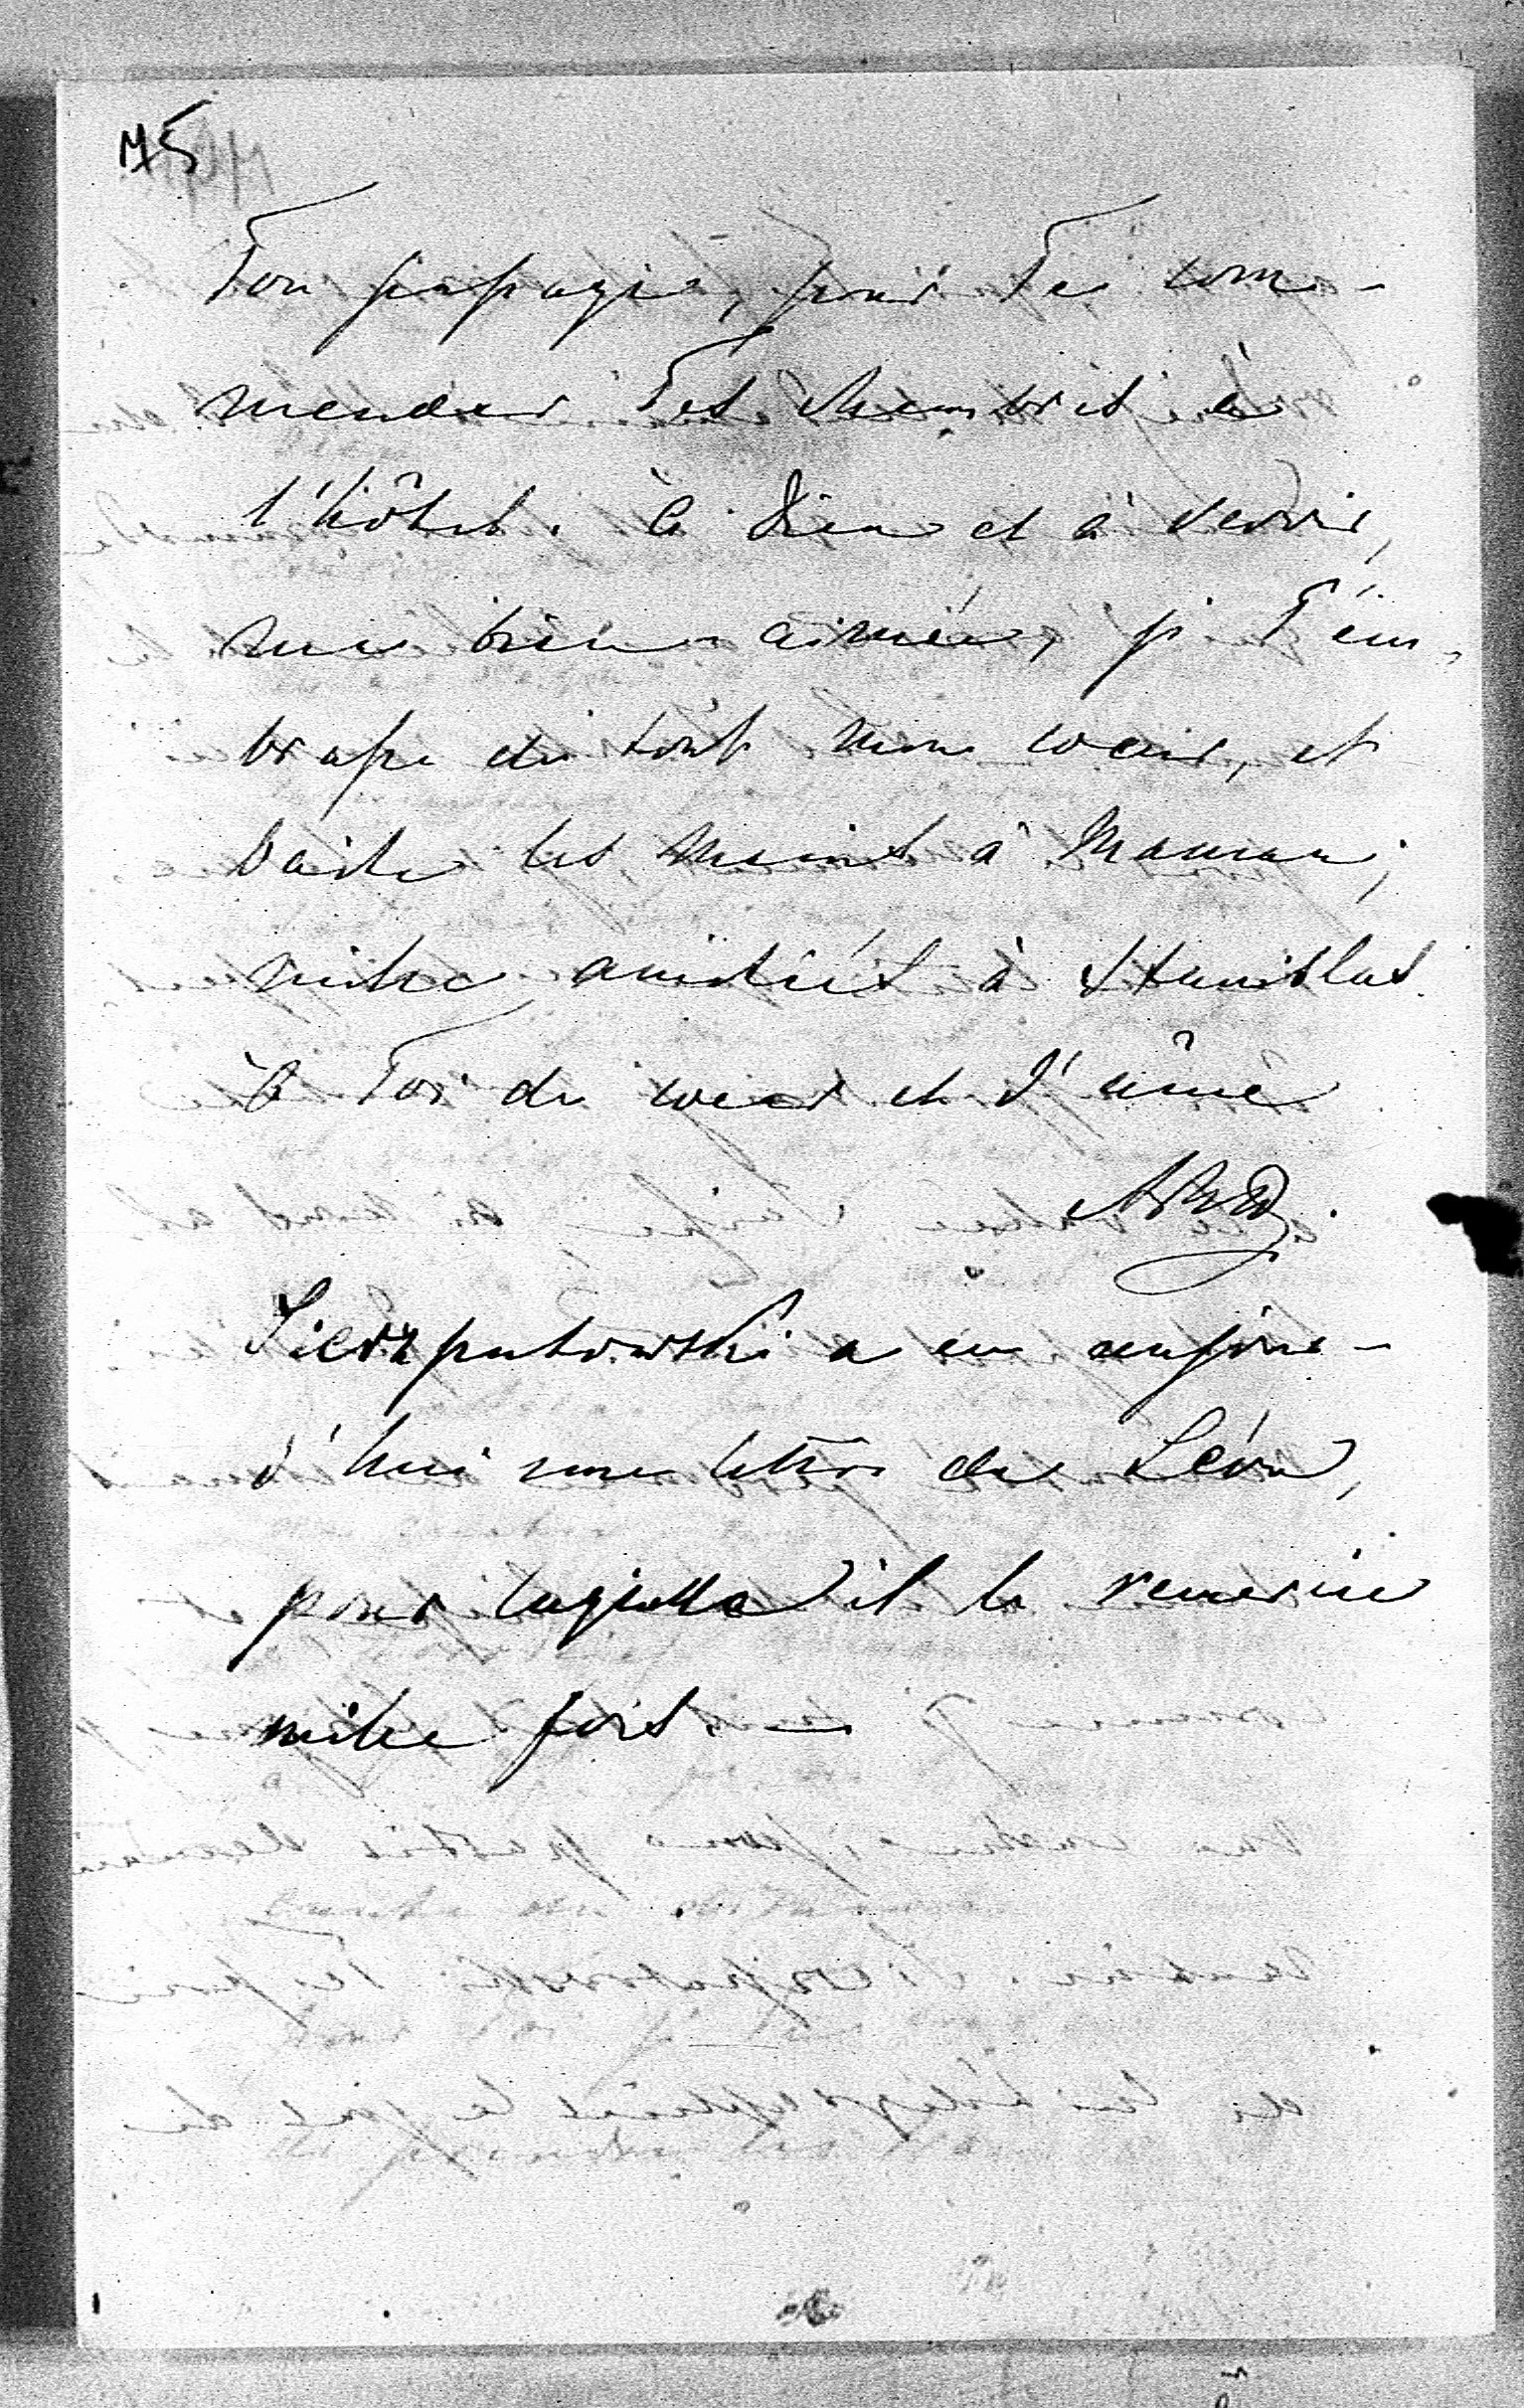 75
Ton passage, pour Te com-
mander Tes chambres à
l'hôtel. à Dieu et à revoir,
ma bien-aimée, je T'em-
brasse de tout mon coeur, et
baise les mains à Maman;
mille amitiés à Stanislas.
à Toi de coeur et d'âme
Sierzputowski a eu aujour-
d'hui une lettre de Léon,
pour laquelle il le remercie
mille fois. —